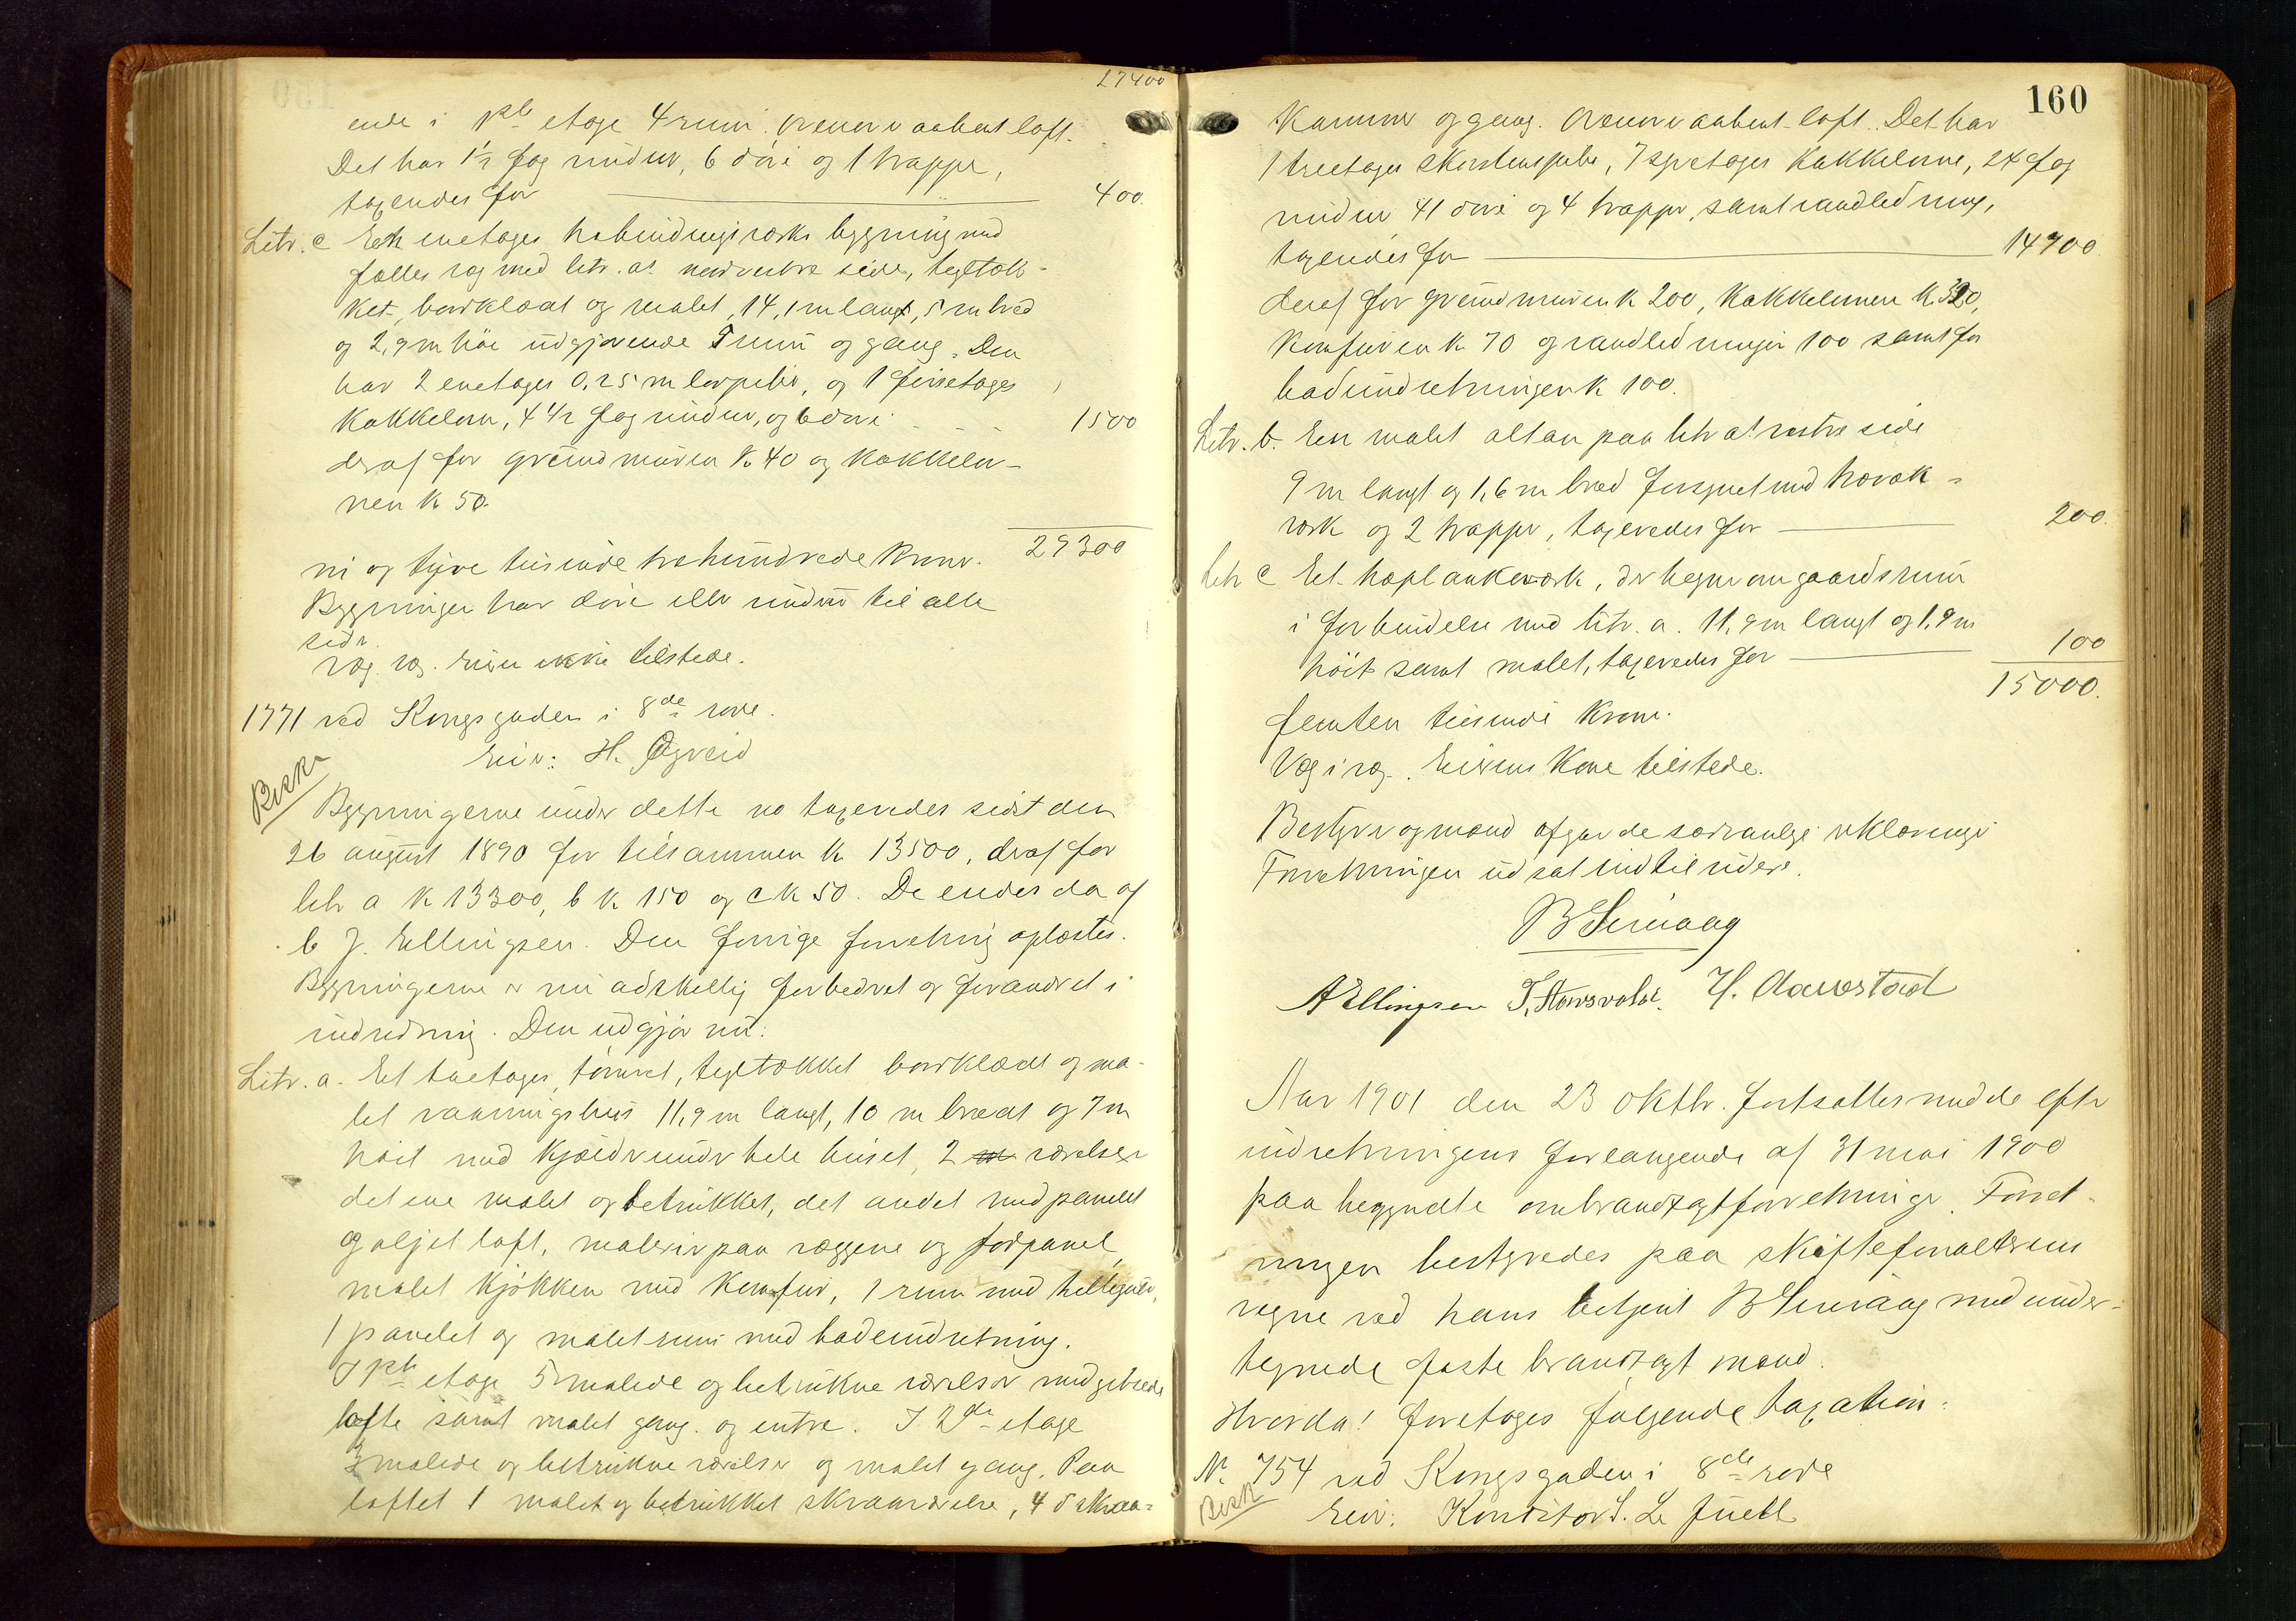 27400
ende i 1ste etage 4 rum. Ovenover aabent loft.
Det har 1½ fag vinduer, 6 döre og 1 trappe,
taxeredes for 400.
Litr. c Een enetages trebindingsværks bygning med
fælles væg med litr. a's nordvestre side, teglstæk-
ket, bordklædt og malet, 14,1 m langt, 5 m bred
og 2,9 m höi udgjörende rum og gang. Den
har 2 enetages 0,25 m lörpiber, og 1 firetages
kakkelovn, 4½ fag vinduer, og 6 döre 1500
deraf for grundmuren K. 40 og kakkelov-
nen K 50.
29300
ni og tyve tusinde trehundrede Kroner.
Bygningen har döre eller vinduer til alle
sider.
Væg væg. Eieren ikke tilstede.
1771 ved Kongsgaden i 8de rode.
Eier: H. Øgreid
Besk.
Bygningerne under dette no taxeredes sidst den
26 august 1890 for tilsammen K 13500, deraf for
litr a K 13300, b K 150 og c K 50. De eiedes da af
J. Ellingsen. Den forrige forretning oplæstes.
Bygningerne er nu adskillig forbedret og forandret i
indredning. Den udgjör nu:
Litr. a. Et toetages, tömret, teglstækket bordklædt og ma-
let vaaningshus 11,9 m langt, 10 m bredt og 7 m
höit med kjælder under hele huset, 2 værelser
det ene malet og betrukket, det andet med panelet
og oljet loft, maleri paa væggene og fodpanel,
malet kjökken med komfur, 1 rum med hellegulv,
1 panelet og malet rum med badeindretning.
I 1ste etage 5 malede og betrukne værelser med gibsede
lofte samt malet gang og entre. I 2den etage
3 malede og betrukne værelser og malet gang. Paa
loftet 1 malet og betrukket skraaværelse, 4 skraa-
160
kammer og gang. Ovenover aabent loft. Det har
1 treetages skorstenspibe, 7 syvetages kakkelovne, 24 fag
vinduer 41 döre og 4 trapper, samt vandledning,
taxeredes for 14700
deraf for grundmuren K 200, kakkelovnene K 320,
komfuren K. 70 og vandledningen 100 samt for
badeindretningen K 100.
Litr. b. En malet altan paa litr a's vestre side
9 m langt og 1,6 m bred forsynet med træræk-
værk og 2 trapper, taxeredes for 200.
Litr c Et træplankeværk, der hegner om gaardsrum
i forbindelse med litr. a. 11,9 m langt og 1,9 m
höit samt malet, taxeredes for 100
15000.
femten tusinde Kroner.
Væg i væg. Eierens Kone tilstede.
Bestyrer og mænd afgav de sædvanlige erklæringer
Forretningen udsat indtil videre.
B Semaag
A Ellingsen T. Stensvold. H. Aanestad
Aar 1901 den 23 oktbr. fortsattes med de efter
indretningens forlangende af 31 mai 1900
paabegyndte ombrandtaxtforretninger. Forret-
ningen bestyredes paa skifteforvalterens
vegne ved hans betjent B Semaag med under-
tegnede faste brandtaxtmænd.
Hvorda! foretoges fölgende taxation:
Nr. 754 ved Kongsgaden i 8de rode
Besk
Eier: Konditor S. Le Juell